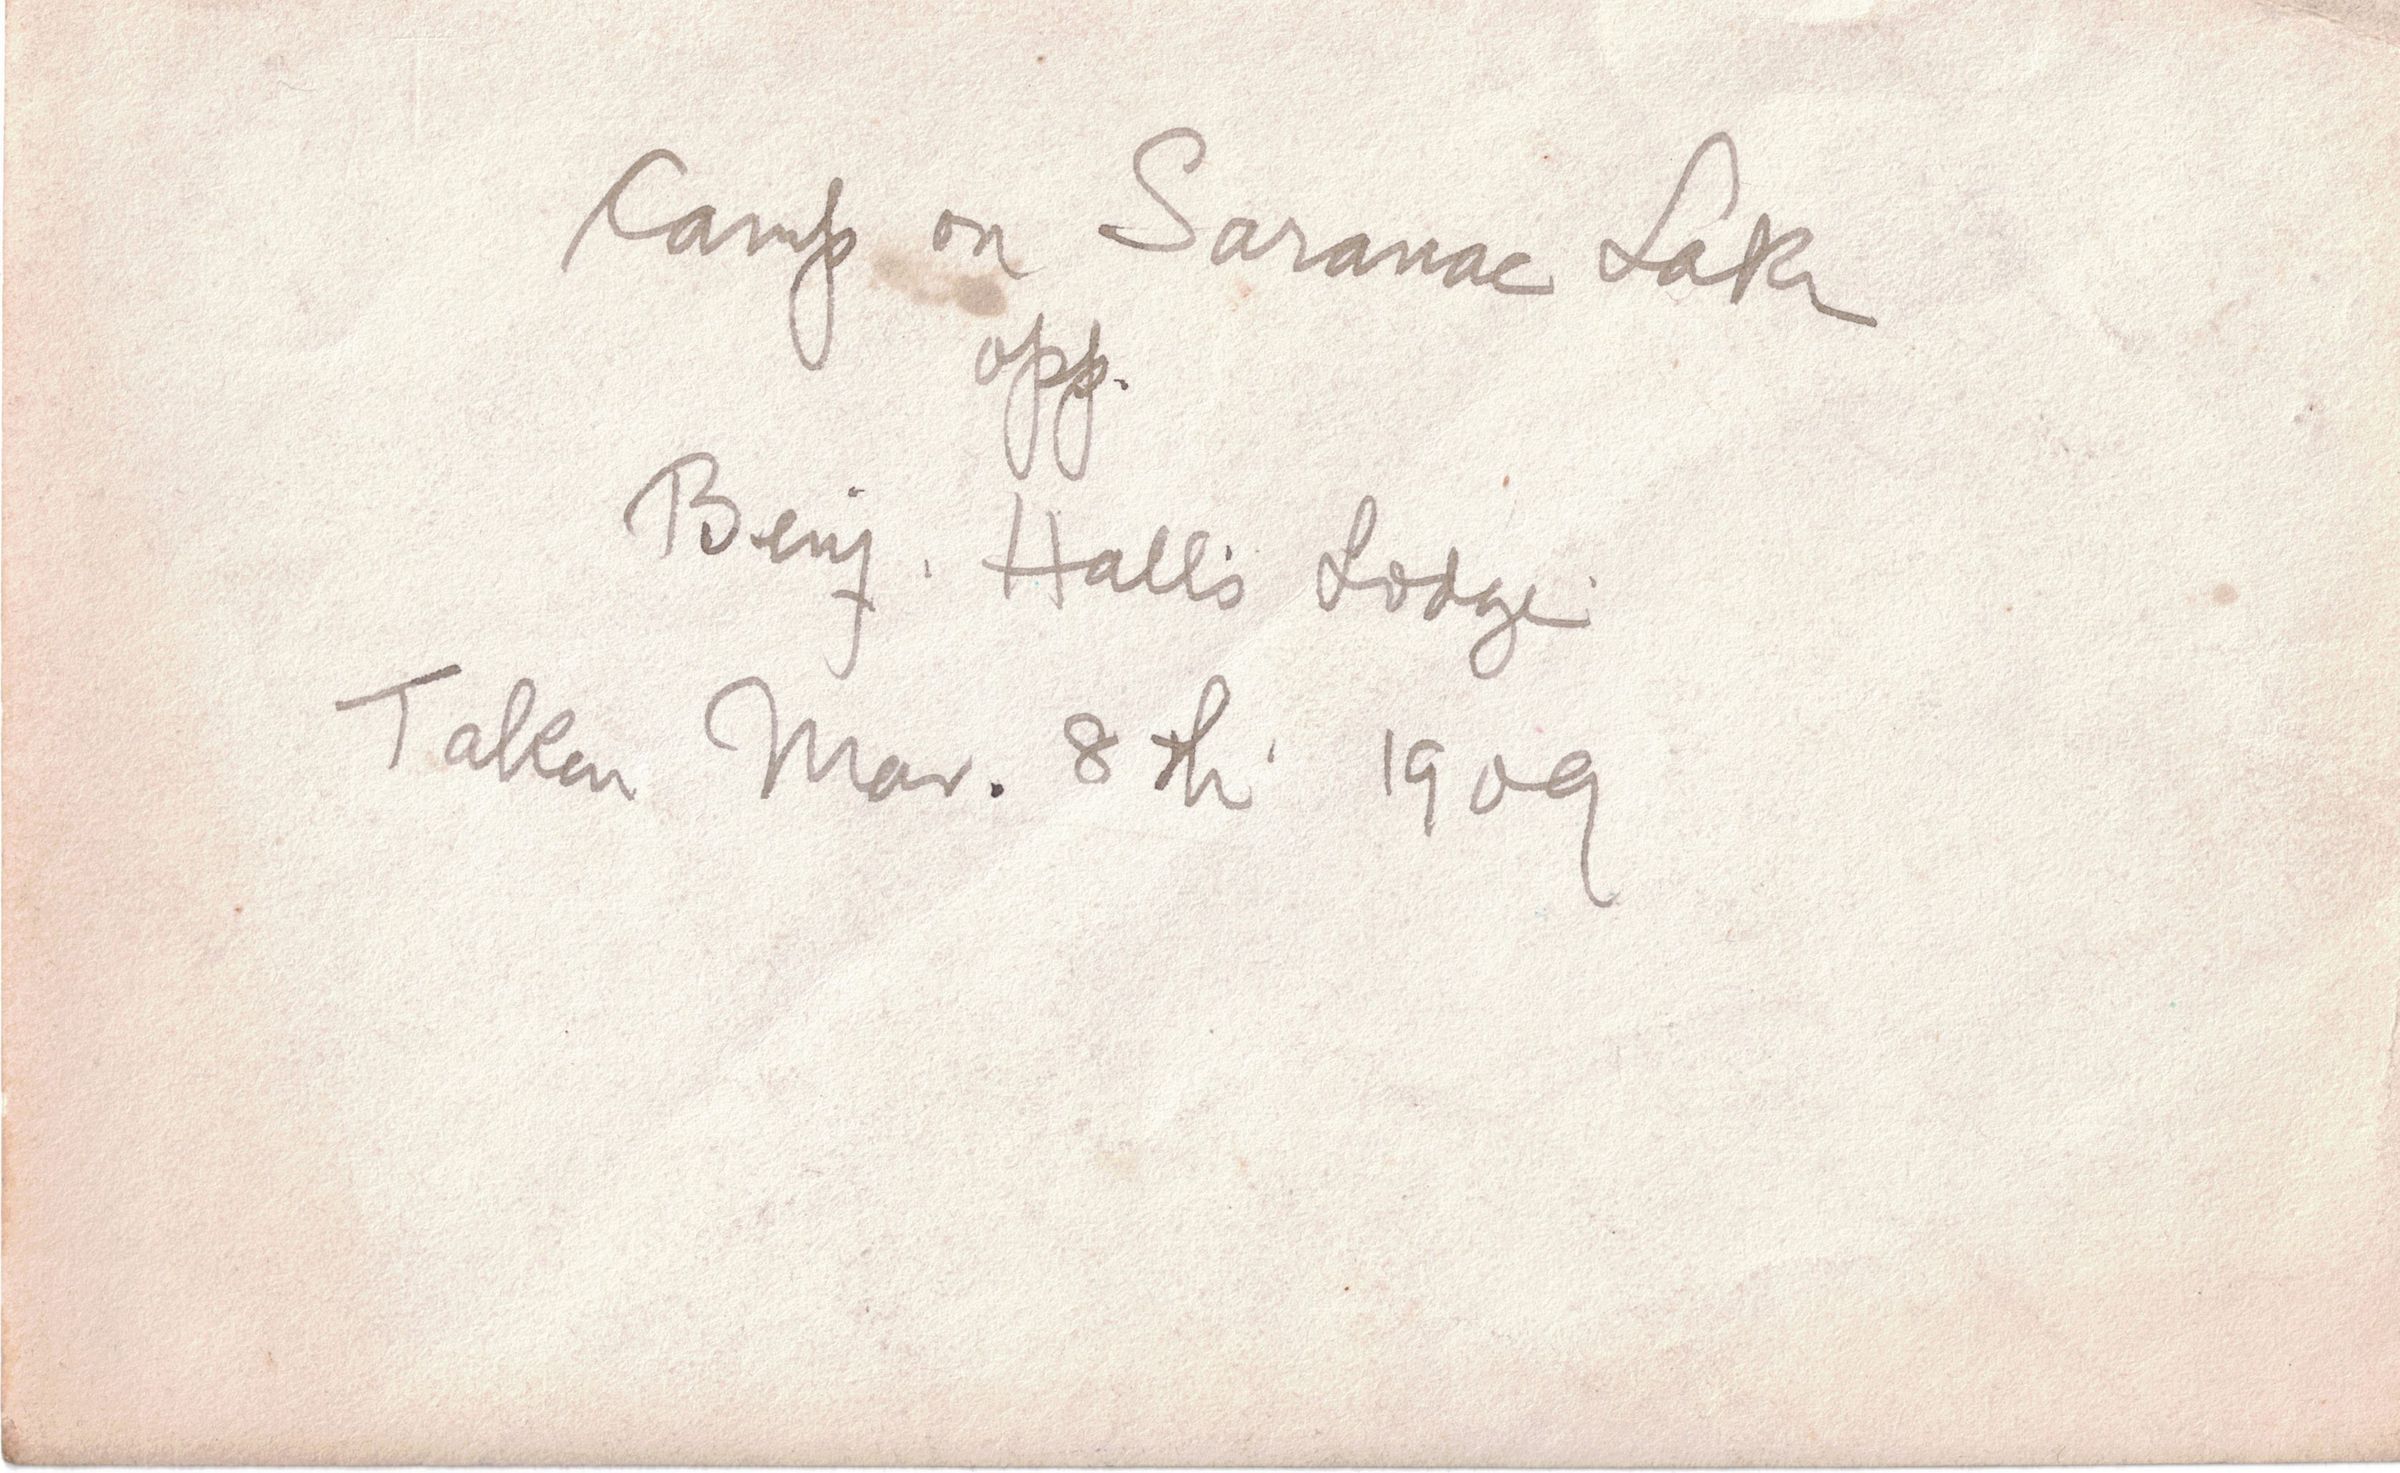 Camp on Saranac Lake
opp.
Benj. Hall's Lodge
Taken Mar. 8th 1909